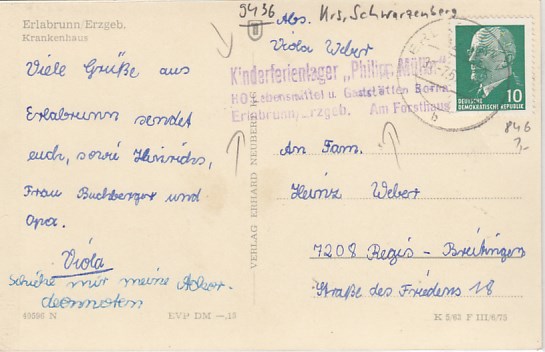 Erlabrunn/Erzgeb.
Krankenhaus
Viele Grüße aus
Erlabrunn sendet
euch, sowie Hinrichs,
Frau Buchberger und
Opa.
Viola
Schicke mir meine Akkor-
deonnoten
49396 N
EVP DM —,15
VERLAG ERHARD NEUBERT
9436
Abs.
Krs. Schwarzenberg
Viola Weber
Kinderferienlager „Philipp Müller"
HO Lebensmittel u. Gaststätten Borna
Erlabrunn/Erzgeb. Am Forsthaus
DEUTSCHE
DEMOKRATISCHE REPUBLIK
10
b
846
An Fam.
Heinz Weber
7208 Regis-Breitingen
Straße des Friedens 18